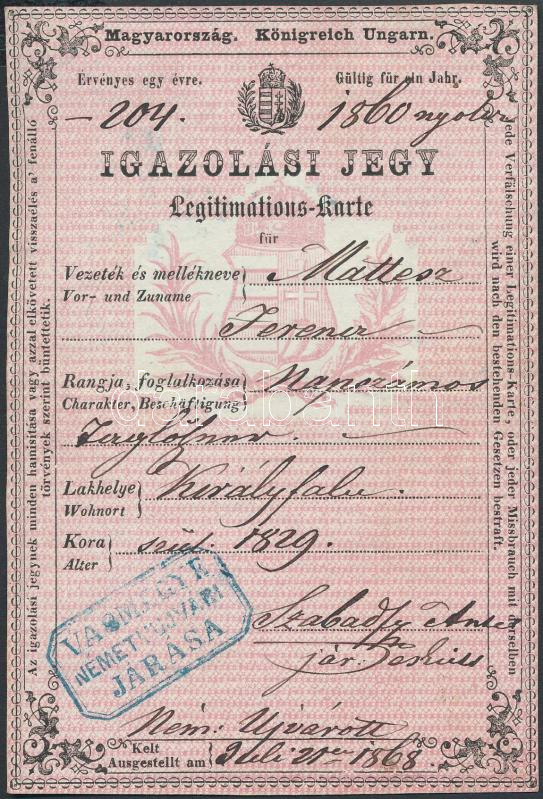 Magyarország. Königreich Ungarn.
Érvényes egy évre. Gültig für ein Jahr.
204. 1860 nyolcz
IGAZOLÁSI JEGY
Legitimations-Karte
für
Vezeték és mellékneve
Vor- und Zuname
Mattesz
Ferencz
Rangja, foglalkozása
Charakter, Beschäftigung
Napszámos
Taglöhner.
Lakhelye
Wohnort
Királyfalu.
Kora
Alter
szül. 1829.
VASMEGYE
NÉMETHUJVÁRI
JÁRÁSA
Szabadfy Antal
Ném: Ujvárott
Kelt
Ausgestellt am
Juli 21 1868.
Az igazolási jegynek minden hamisitása vagy azzal elkövetett visszaélés a' fenálló
törvények szerint büntettetik.
Jede Verfälschung einer Legitimations-Karte, oder jeder Missbrauch mit derselben
wird nach den bestehenden Gesetzen bestraft.
darabanth